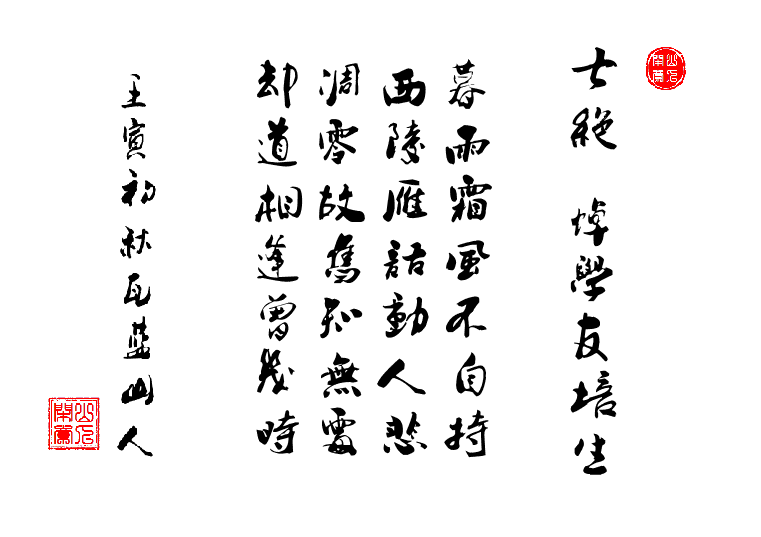 七絕 悼學友培生
暮雨霜風不自持
西陵雁話動人悲
凋零故舊知無
却道相逢曾幾時
壬寅初秋瓦藍山人